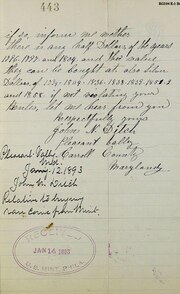 443
if so, inform me whether
there is any half Dollars of the years
1796, 1797 and 18 and their value
they can be bought at also silver
Dollars of 1794, 1804, 1836, 1838, 1839, 1851-2
and 1858 if not violating your
Rules, let me hear from you
Respectfully yours
John N. Ditch
Pleasant Valley
Carroll County
Maryland
Pleasant Vally,
Md.
Jany. 12, 1893
John N. Ditch
Relative to buying
rare coins from Mint.
RECEIVED
JAN 14 1893
U.S. MINT, PHILA